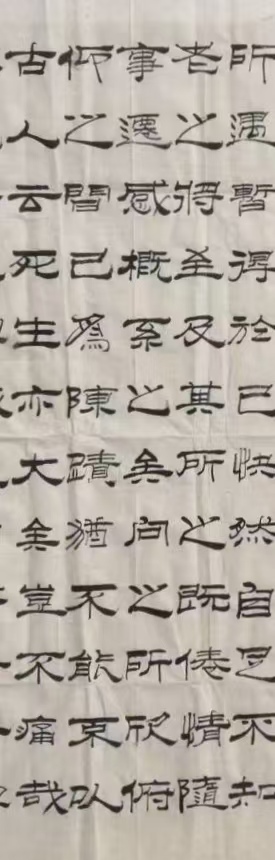 所遇暫得於己快然自足不知
老之將至及其所之既倦情隨
事遷感概系之矣向之所欣俯
仰之間已爲陳蹟猶不能不以
古人云死生亦大矣豈不痛哉